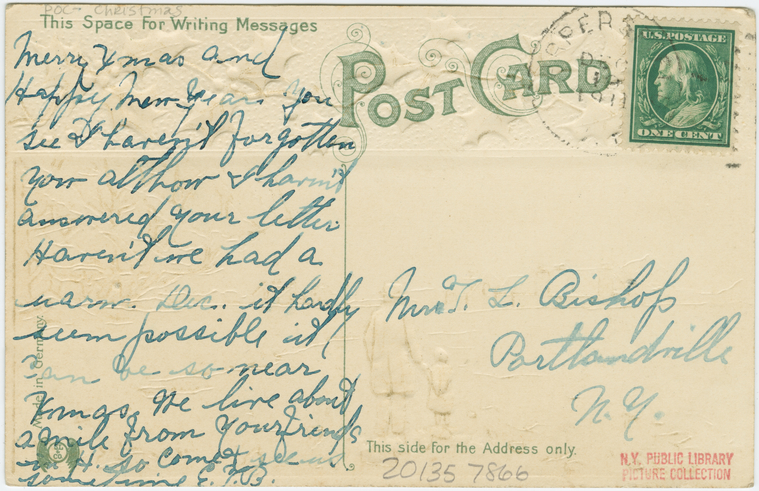 POC - Christmas
This Space For Writing Messages
Merry Xmas and
Happy New Year. You
see I haven't forgotten
you althow I havn't
answered your letter
Haven't we had a
warm. Dec. it hardly
seem possible it
can be so near
Xmas. We live about
a mile from your friends
in H. so come & see us
sometime E. T. B.
Made in Germany.
POST CARD
DEC
1911
U.S. POSTAGE
ONE CENT
Mrs. T. L. Bishop
Portlandville
N.Y.
This side for the Address only.
20135 7866
N.Y. PUBLIC LIBRARY
PICTURE COLLECTION